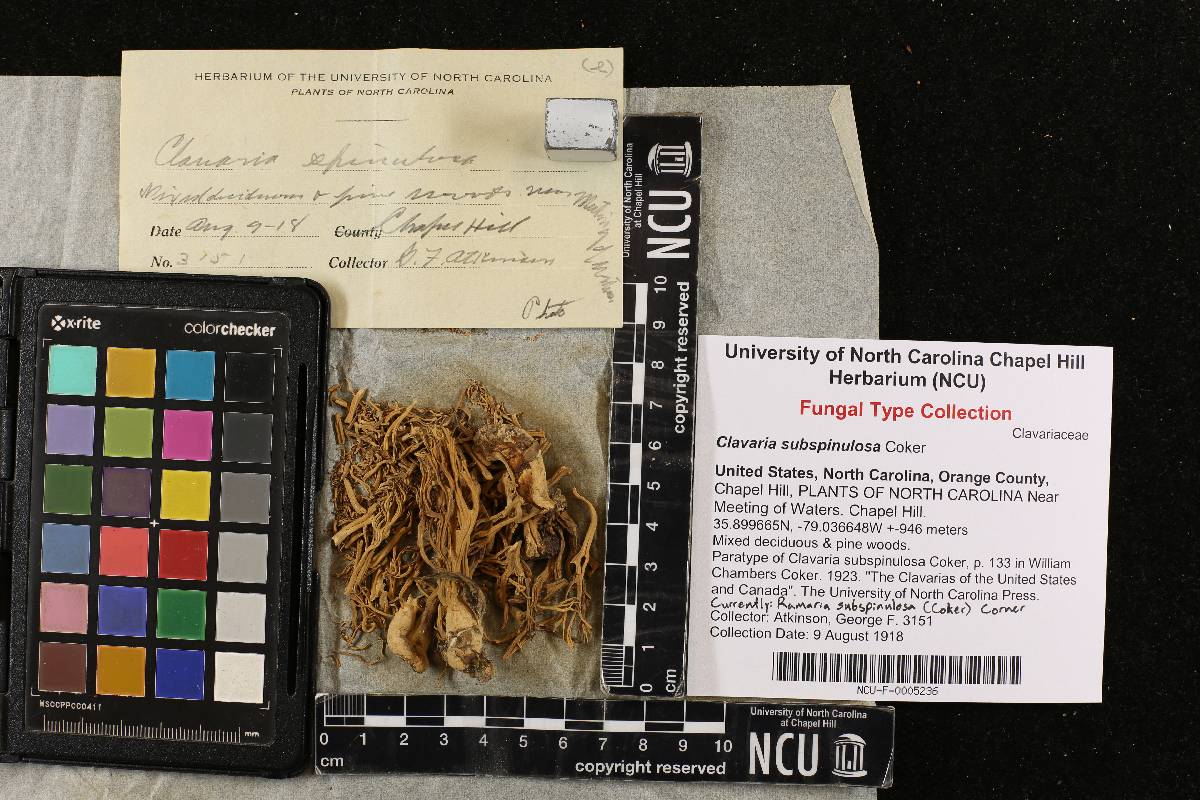 (2)
HERBARIUM OF THE UNIVERSITY OF NORTH CAROLINA
PLANTS OF NORTH CAROLINA
Clavaria spinulosa
Mixed deciduous & pine woods near Meeting of Waters
Date Aug 9-18 County Chapel Hill
No. 3151 Collector G. F. Atkinson
Photo
x-rite colorchecker
MSCCPPCC0411
mm
University of North Carolina
at Chapel Hill
NCU
copyright reserved
10
9
8
7
6
5
4
3
2
1
0
cm
University of North Carolina Chapel Hill
Herbarium (NCU)
Fungal Type Collection
Clavariaceae
Clavaria subspinulosa Coker
United States, North Carolina, Orange County,
Chapel Hill, PLANTS OF NORTH CAROLINA Near
Meeting of Waters. Chapel Hill.
35.899665N, -79.036648W +-946 meters
Mixed deciduous & pine woods.
Paratype of Clavaria subspinulosa Coker, p. 133 in William
Chambers Coker. 1923. "The Clavarias of the United States
and Canada". The University of North Carolina Press.
Currently: Ramaria subspinulosa (Coker) Corner
Collector: Atkinson, George F. 3151
Collection Date: 9 August 1918
NCU-F-0005236
0 1 2 3 4 5 6 7 8 9 10
cm
copyright reserved
University of North Carolina
at Chapel Hill
NCU